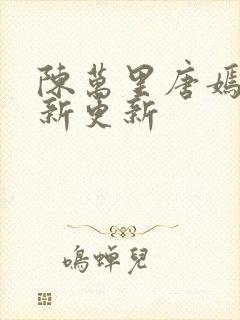 陳萬里唐嫣
新更新
鳴蟬兒